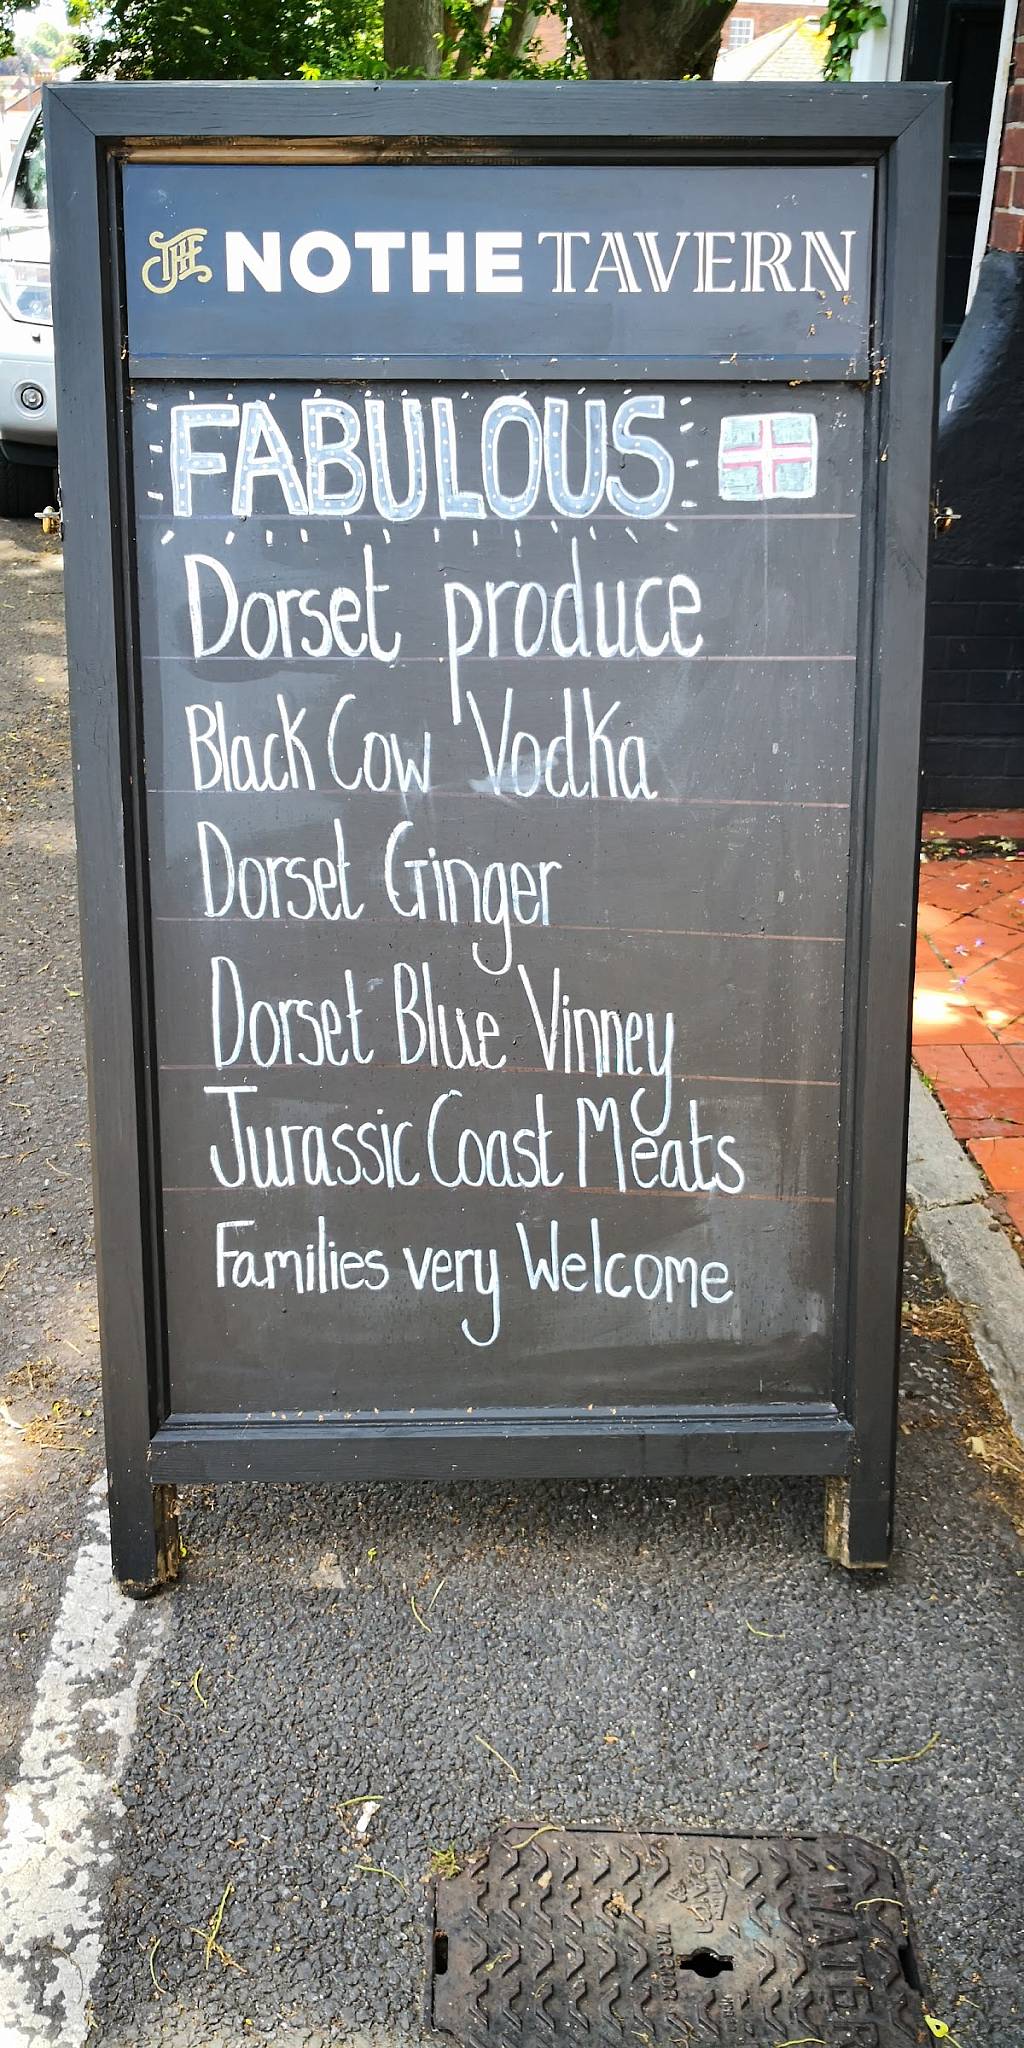 THE NOTHE TAVERN
FABULOUS
Dorset produce
Black Cow Vodka
Dorset Ginger
Dorset Blue Vinney
Jurassic Coast Meats
Families very Welcome
WATER